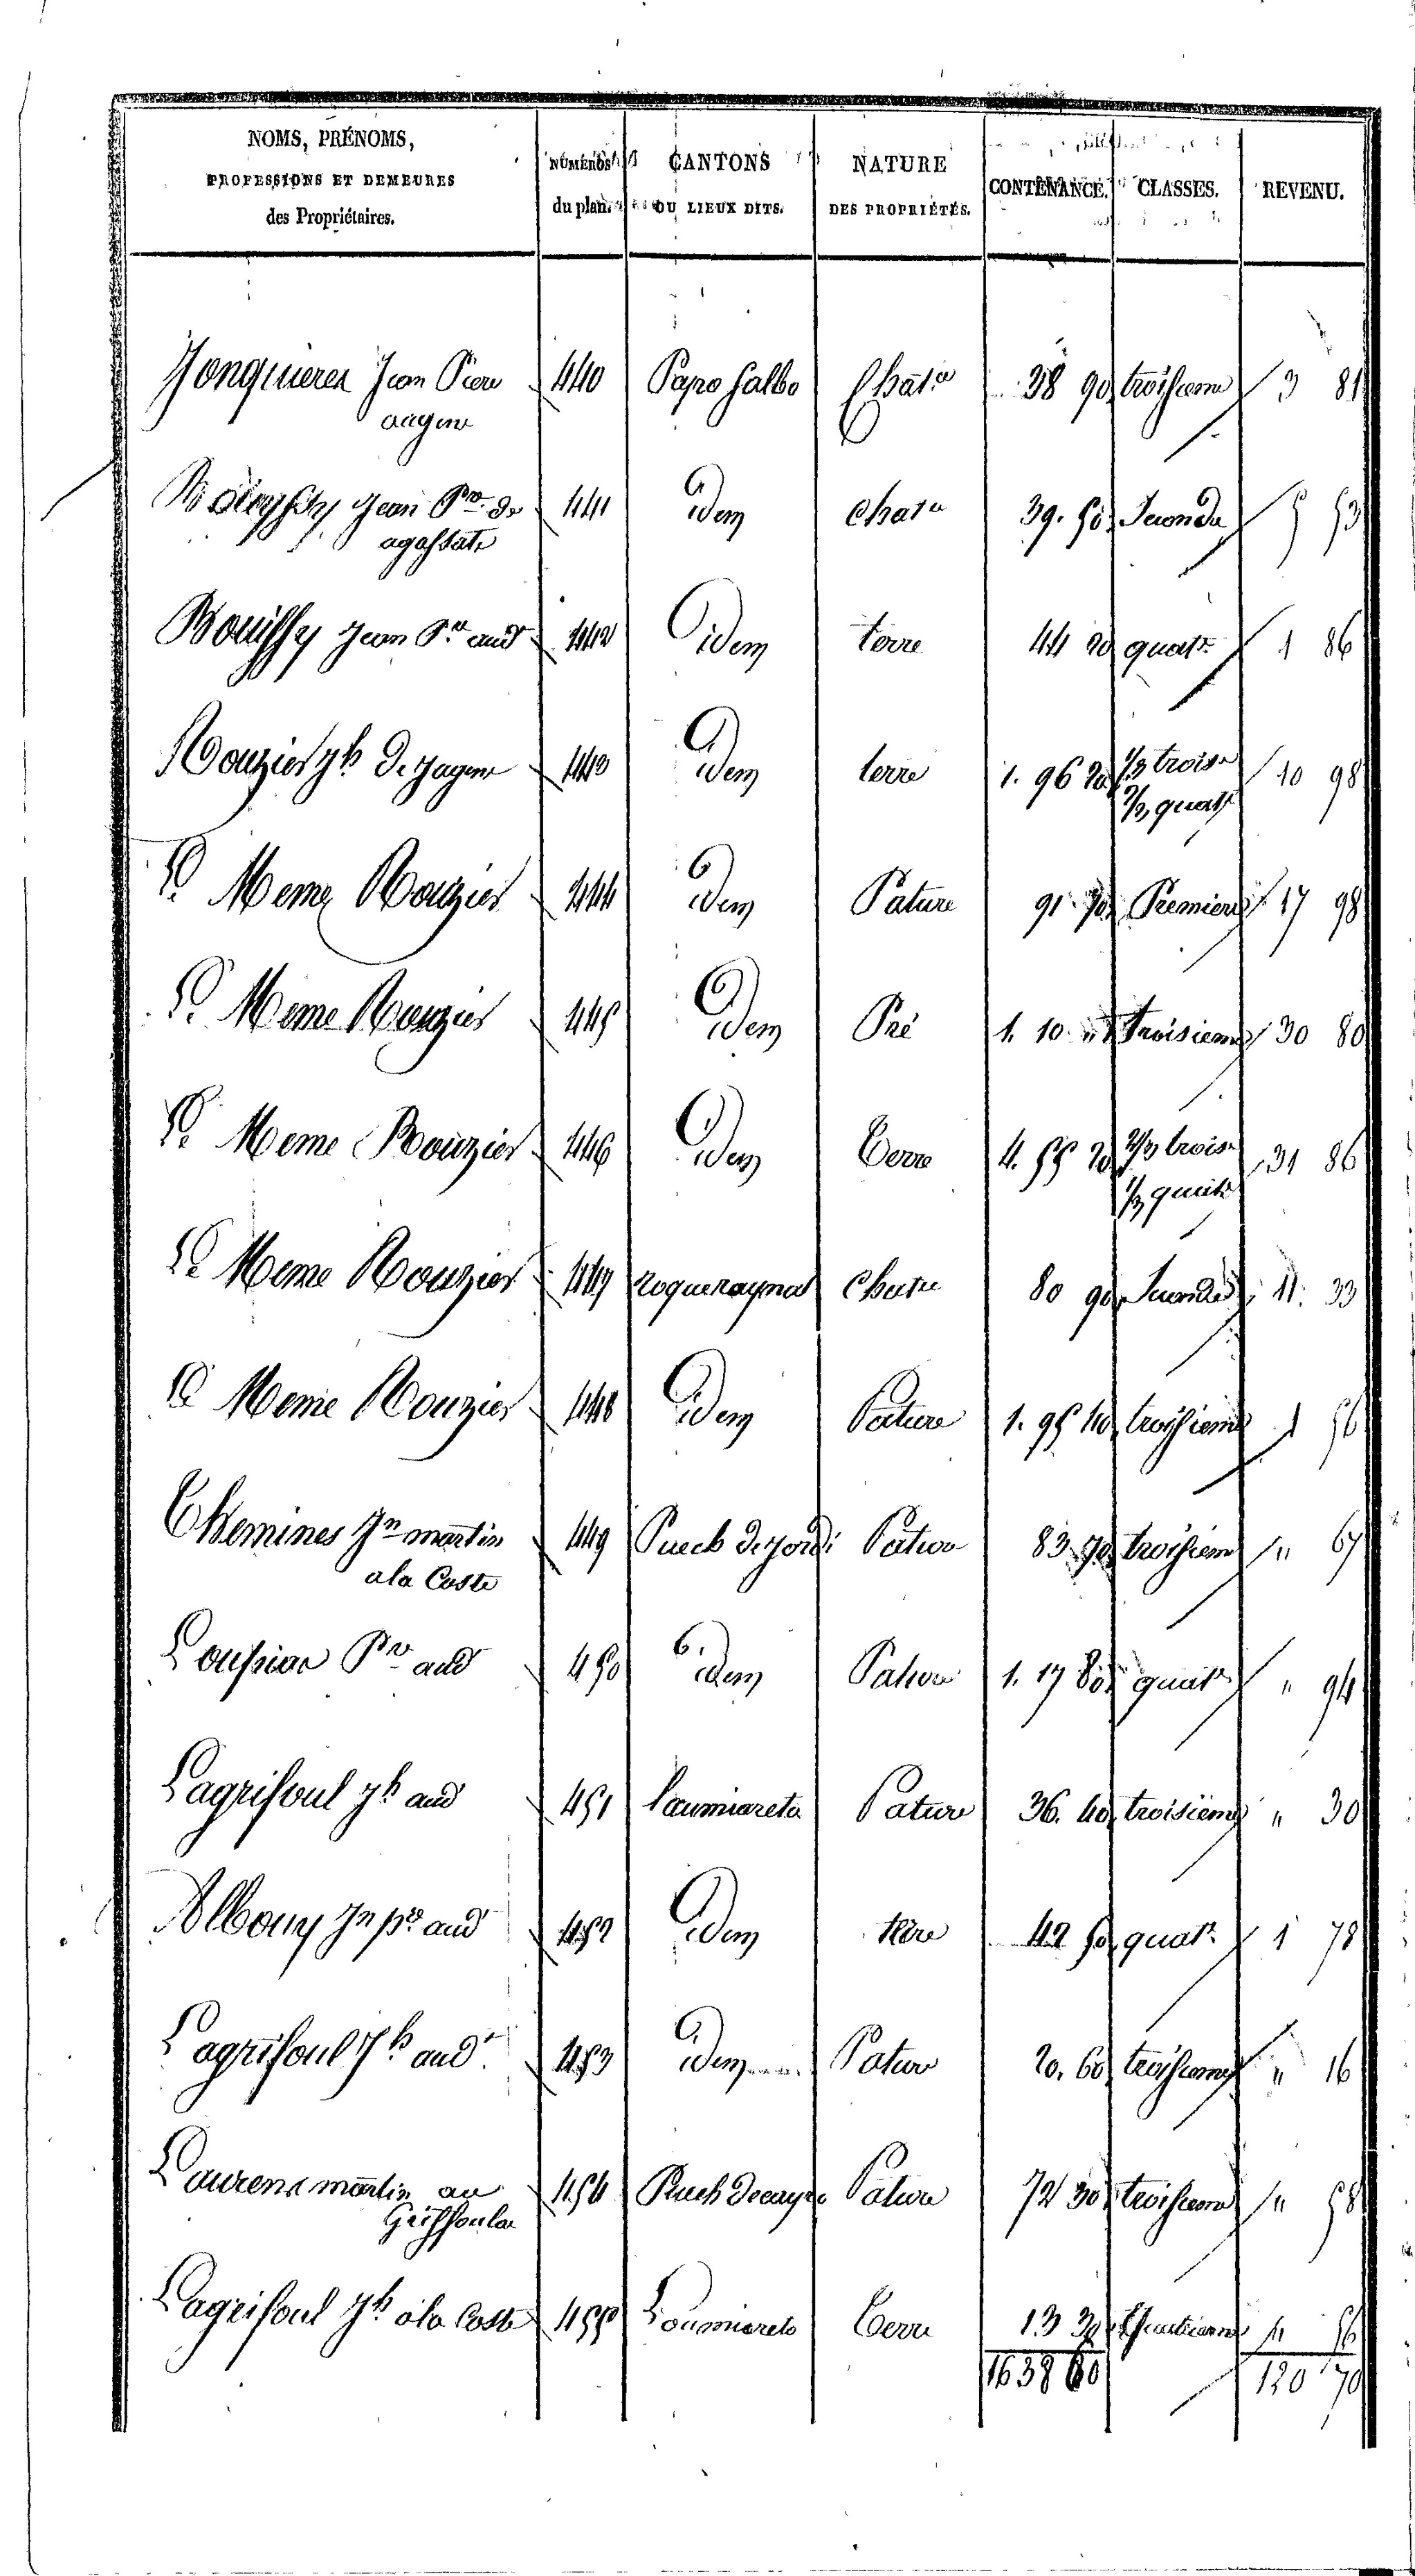 NOMS, PRÉNOMS,
PROFESSIONS ET DEMEURES
des Propriétaires.
NUMÉROS
du plan.
CANTONS
OU LIEUX DITS.
NATURE
DES PROPRIÉTÉS.
CONTENANCE.
CLASSES.
REVENU.
Jonquieres Jean 440 38 90 troisieme 3 81
Jean Pre 441 idem 39. 50 Seconde 5 53
Bouissy Jean Pre aud 442 idem terre 44 20 quatr 1 86
Rouzier Jh 443 idem terre 1. 96 20 1/3 trois 10 98
2/3 quatr
Le Meme Rouzier 444 idem Pature 91 70 Premiere 17 98
Le Meme Rouzier 445 idem Pré 1. 10 " troisieme 30 80
Le Meme Rouzier 446 idem Terre 4. 55 20 2/3 trois 31 86
1/3 quatr
Le Meme Rouzier 447 roqueraynal 80 90 Seconde 11. 33
Le Meme Rouzier 448 idem Pature 1. 95 40 troisieme 1 56
Chemines Jn martin 449 Puech Pature 83 70 troisieme " 67
a la Coste
Pre aud 450 idem Pature 1. 17 80 quatr " 94
Lagrifoul Jh aud 451 Loumiareto Pature 36. 40 troisieme " 30
Albouy Jn pre aud 452 idem terre 42 50 quatr 1 78
Lagrifoul Jh aud 453 idem Pature 20. 60 troisieme " 16
Laurens martin au 454 Puech Pature 72 30 troisieme " 58
Griffoula
Lagrifoul Jh a la Coste 455 Loumiareto Terre 13 30 " 56
16 38 60 120 70